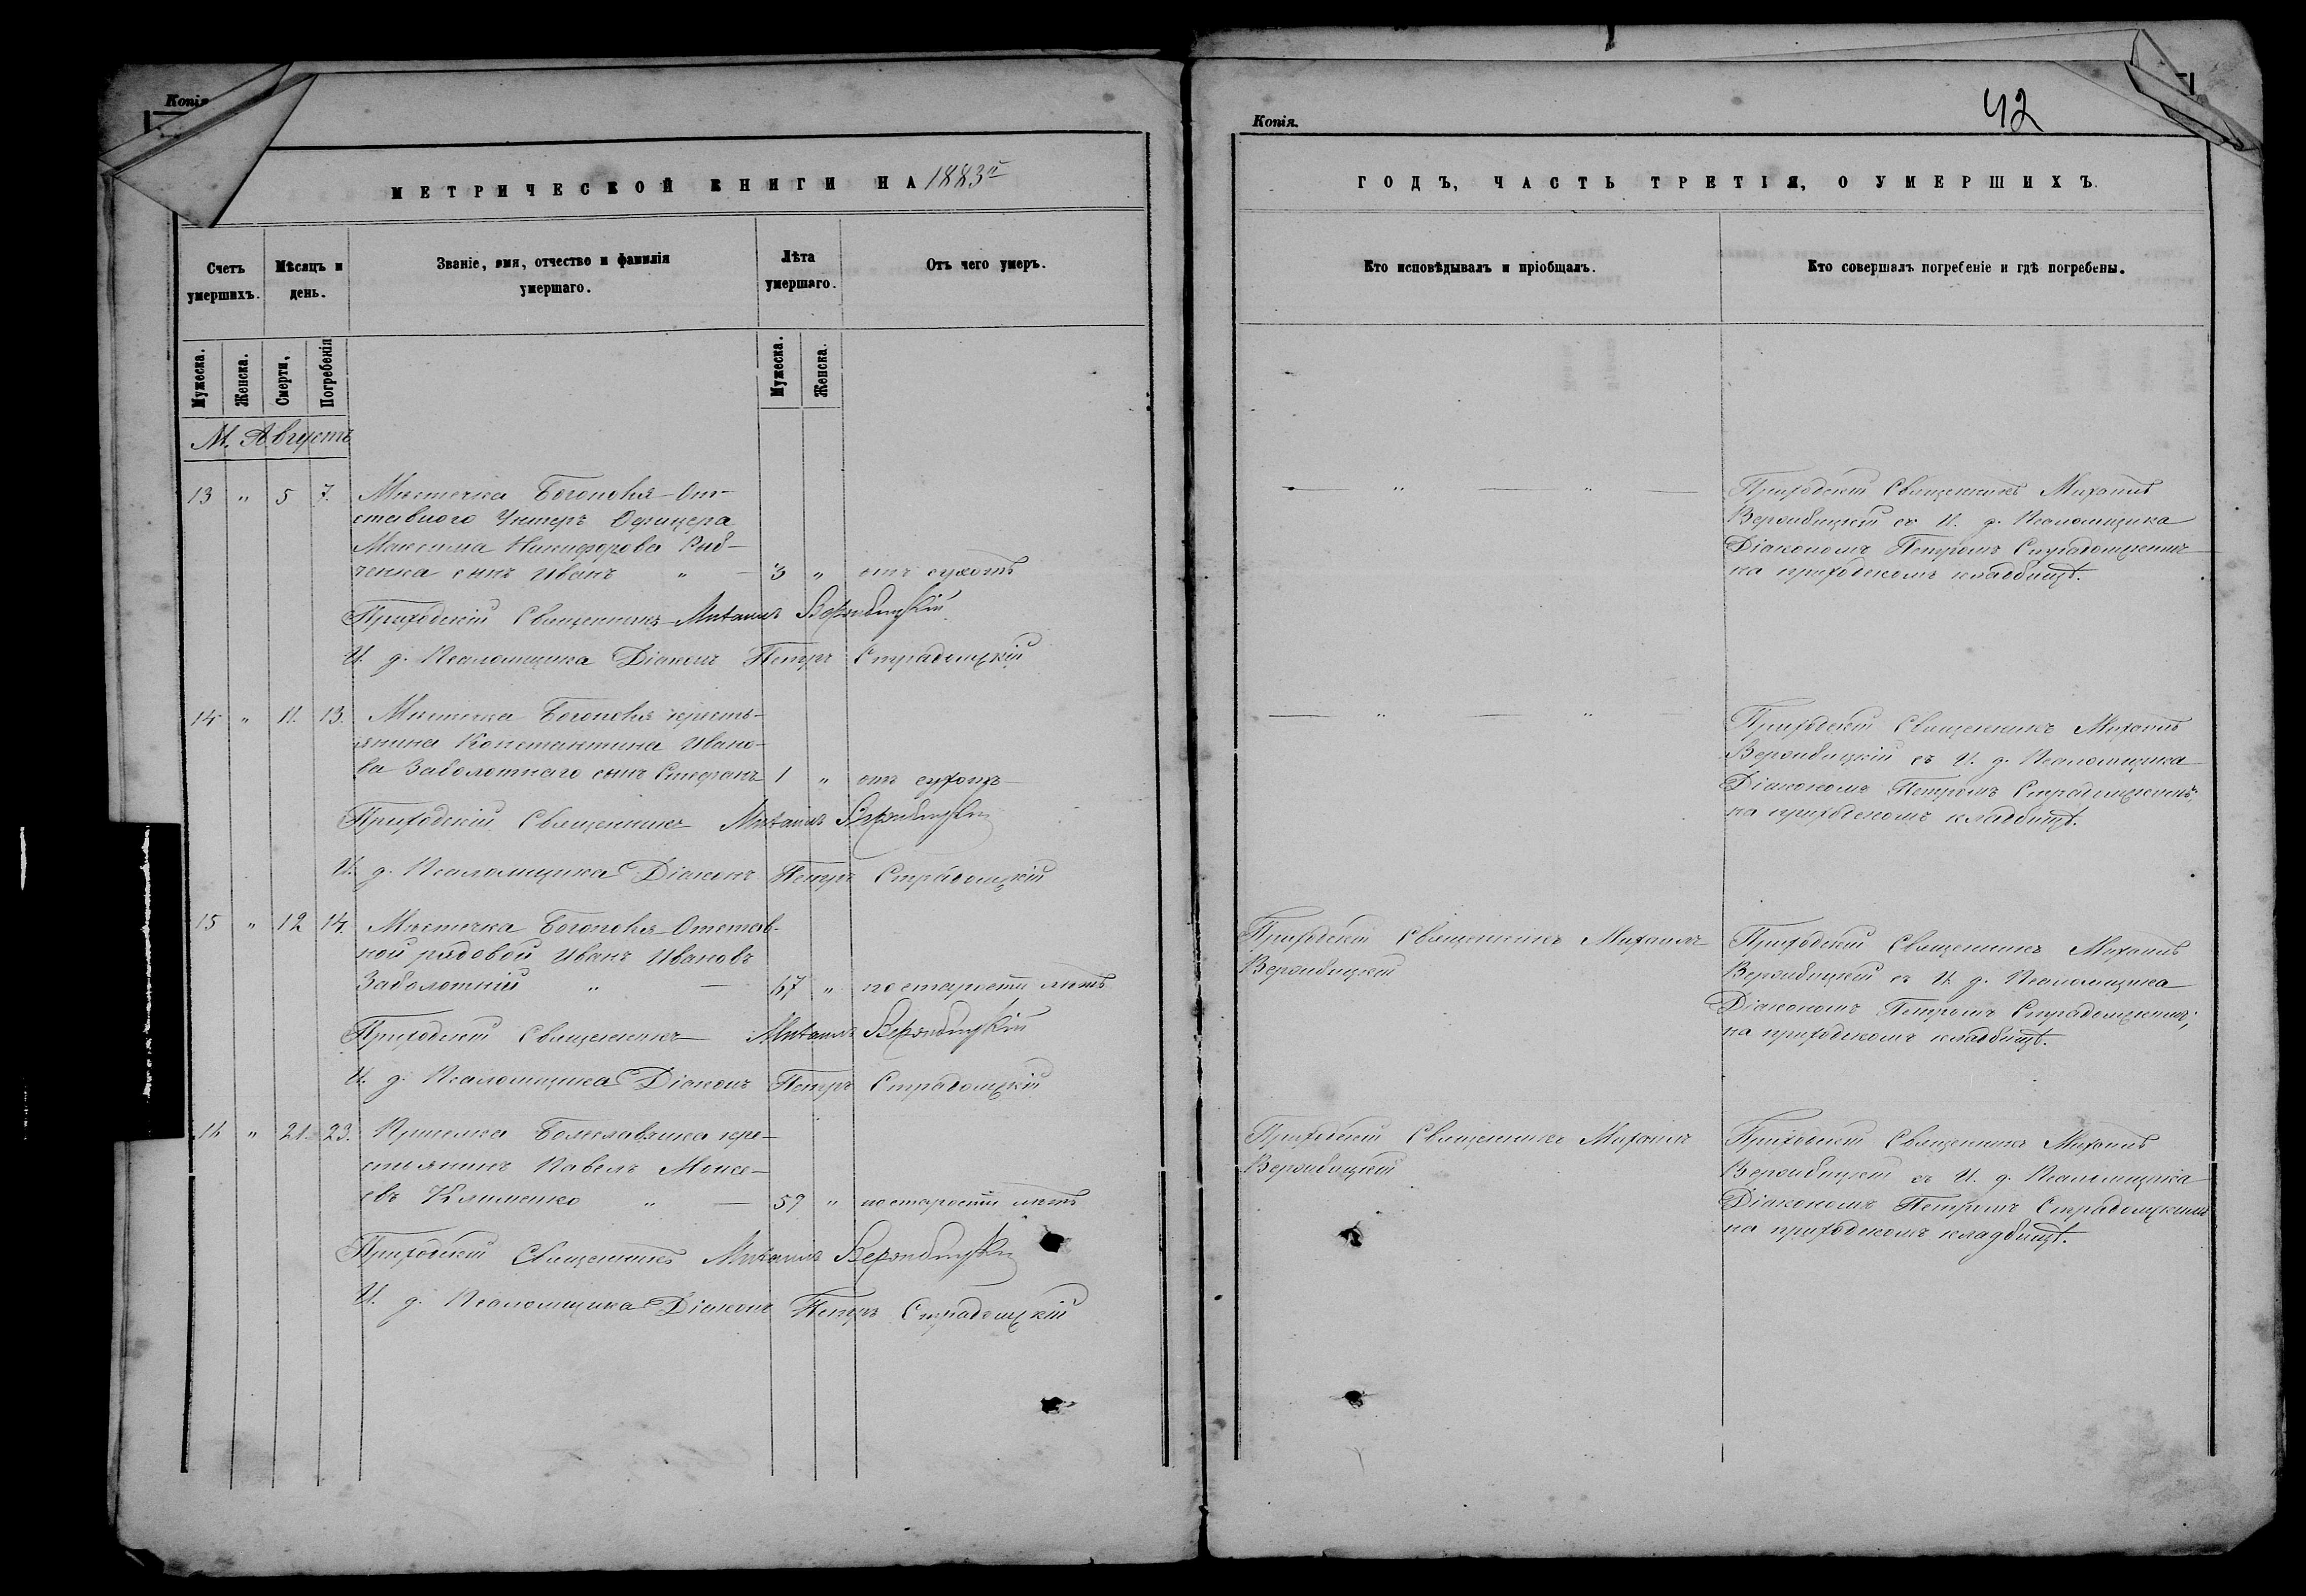 Копія
Копія.
42
МЕТРИЧЕСКОЙ КНИГИ НА 1883й
ГОДЪ, ЧАСТЬ ТРЕТІЯ, О УМЕРШИХЪ.
Счетъ умершихъ.
Мѣсяцъ и день.
Званіе, имя, отчество и фамилія умершаго.
Лѣта умершаго.
Отъ чего умеръ.
Кто исповѣдывалъ и пріобщалъ.
Кто совершалъ погребеніе и гдѣ погребены.
Мужеска.
Женска.
Смерти.
Погребенія
Мужеска.
Женска.
М. Августъ
13 " 5 7. Мѣстечка Богополя От-
ставного Унтеръ Офицера
Максима Никифорова
ченка сынъ Иванъ " — 3 " отъ сухотъ
— " — " —
Приходскій Священникъ Михаилъ
Вержбицкій съ И. д. Псаломщика
Діакономъ Петромъ Страдомскимъ
на приходскомъ кладбищѣ.
Приходскій Священникъ Михаилъ Вержбицкій
И. д. Псаломщика Діаконъ Петръ Страдомскій
14 " 11. 13. Мѣстечка Богополя кресть-
янина Константина Ивано-
ва Заболотнаго сынъ Стефанъ 1 " отъ сухотъ
— " — " —
Приходскій Священникъ Михаилъ
Вержбицкій съ И. д. Псаломщика
Діакономъ Петромъ Страдомскимъ,
на приходскомъ кладбищѣ.
Приходскій Священникъ Михаилъ Вержбицкій
И. д. Псаломщика Діаконъ Петръ Страдомскій
15 " 12 14. Мѣстечка Богополя Отстав-
ной рядовой Иванъ Ивановъ
Заболотній " — 67 " по старости лѣтъ
Приходскій Священникъ Михаилъ
Вержбицкій
Приходскій Священникъ Михаилъ
Вержбицкій съ И. д. Псаломщика
Діакономъ Петромъ Страдомскимъ,
на приходскомъ кладбищѣ.
Приходскій Священникъ Михаилъ Вержбицкій
И. д. Псаломщика Діаконъ Петръ Страдомскій
16 " 21. 23. Приселка Болеславчика кре-
стьянинъ Павелъ Моисе-
евъ Клименко " — 59 " по старости лѣтъ
Приходскій Священникъ Михаилъ
Вержбицкій
Приходскій Священникъ Михаилъ
Вержбицкій съ И. д. Псаломщика
Діакономъ Петромъ Страдомскимъ
на приходскомъ кладбищѣ.
Приходскій Священникъ Михаилъ Вержбицкій
И. д. Псаломщика Діаконъ Петръ Страдомскій